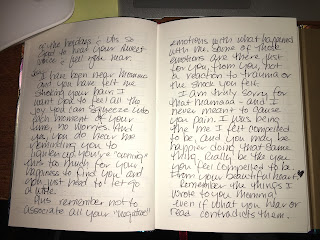 of the holidays & vbs so
good to hear your sweet
voice & feel you near.
I have been near Momma
and you have felt me
I want you to feel all the
joy you can squeeze into
each moment of your
time, no worries. And
yes, you do hear me
reminding you to
lighten up you're "coming"
at to much for your
happiness to find you and
you just need to let go
a little.
Plus remember not to
associate all your "negative"
emotions with what happened
with me. Some of those
emotions are there just
for you, from you, not
a reaction to trauma or
the shock you felt.
I am truly sorry for
that mamaaa - and I
never meant to cause
you pain. I was being
the me I felt compelled
to be, and you may be
happier doing that same
thing. Really be the you
you feel compelled to be.
From your beautiful heart
Remember the things I
wrote to you Momma
even if what you hear or
read contradicts them.